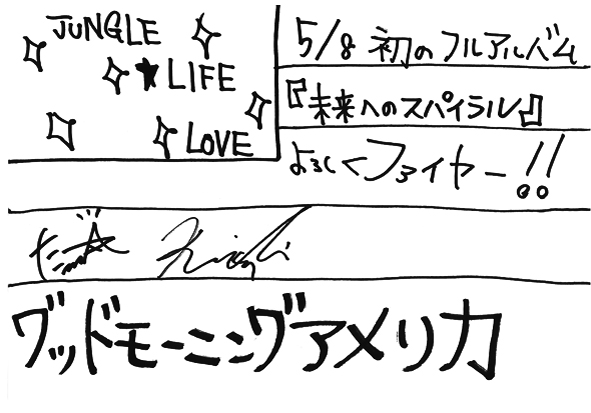 JUNGLE
LIFE
LOVE
5/8 初のフルアルバム
『未来へのスパイラル』
よろしくファイヤー!!
グッドモーニングアメリカ